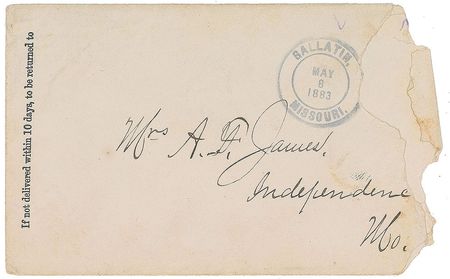 If not delivered within 10 days, to be returned to
GALLATIN,
MAY
8
1883
MISSOURI.
Mrs A. F. James.
Independenc
Mo.